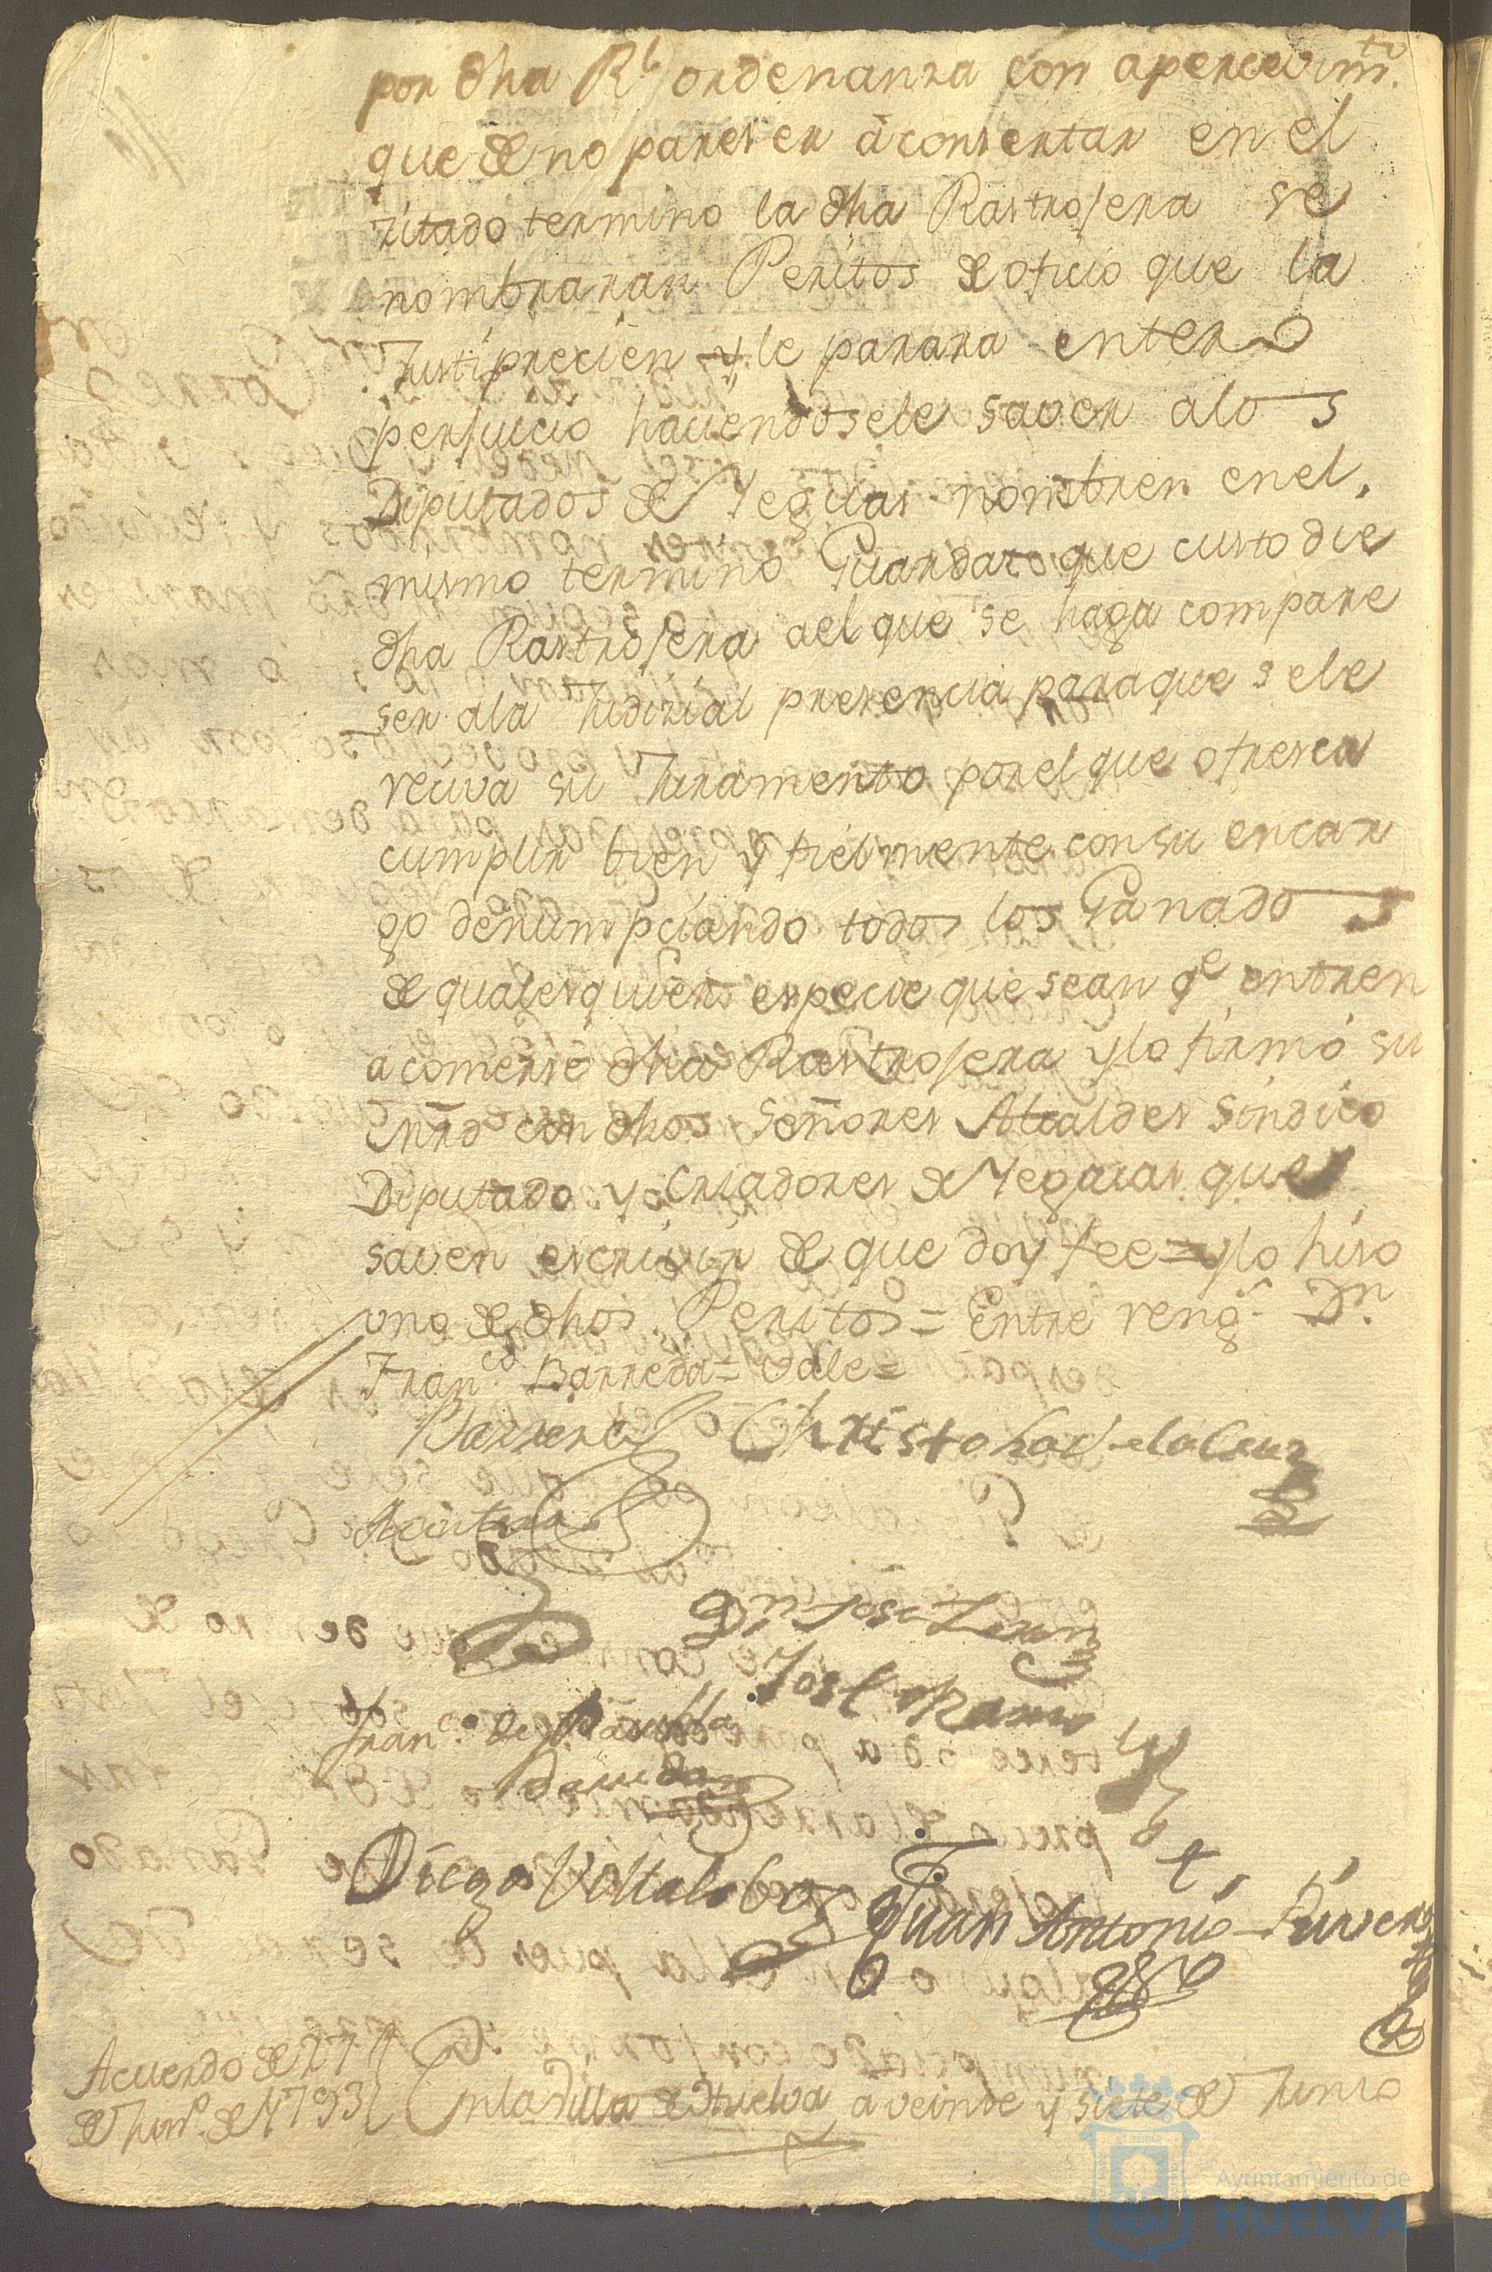 por dha Rl ordenanza con apercevimto.
que de no pareser a consertar en el
zitado termino la dha Rastrojera se
nombraran Peritos de oficio que la
Justiprecien y le parara entero
perjuicio haciendosele saver a los
Diputados de Yeguas nombren en el
mismo termino Guarda que custodie
dha Rastrojera a el que se haga compare
ser a la Judizial presencia para que sele
reciva su Juramento por el que ofresca
cumplir bien y fielmente con su encar
go denumpciando todos los Ganados
de qualesquiera especie que sean qe entren
a comerse dha Rastrojera y lo firmó su
Mrd con dhos Señores Alcaldes Sindico
Diputado y Criadores de Yeguas que
saven escrivir de que doy fee = y lo hiso
uno de dhos Peritos = Entre reng.s Dn.
Franco. Barreda = vale =
Barrera Christobal de la Cruz
Dn Jose
Jose Ramo
Franco. de Paula
Diego Villalobos Juan Antonio Rivera
Acuerdo de 27
de Juno. de 1793
En la Villa de Huelva a veinte y siete de Junio
Ayuntamiento de
HUELVA